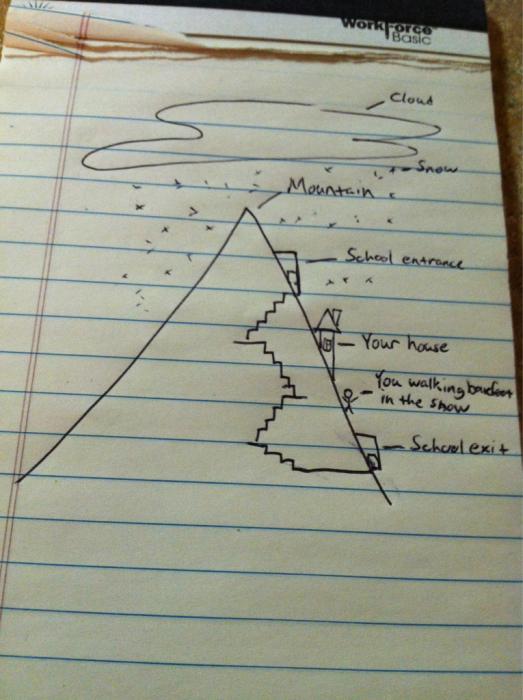 WorkForce
Basic
Cloud
Snow
Mountain
School entrance
Your house
You walking barefoot
in the snow
School exit